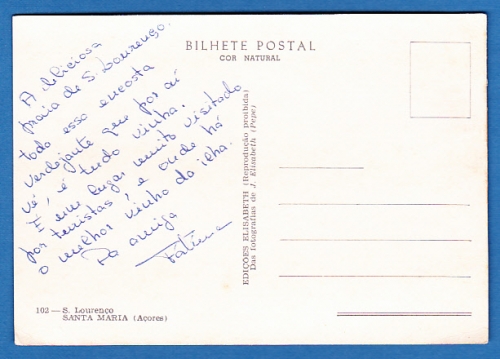 A deliciosa
praia de S. Lourenço.
toda essa encosta
verdejante que por aí
vê, é tudo vinha.
É um lugar muito visitado
por turistas, e onde há
o melhor vinho da ilha.
Da amiga
Fátima
BILHETE POSTAL
COR NATURAL
EDIÇÕES ELISABETH (Reprodução proibida)
Das fotografias de J. Elisabeth (Pepe)
102 — S. Lourenço
SANTA MARIA (Açores)